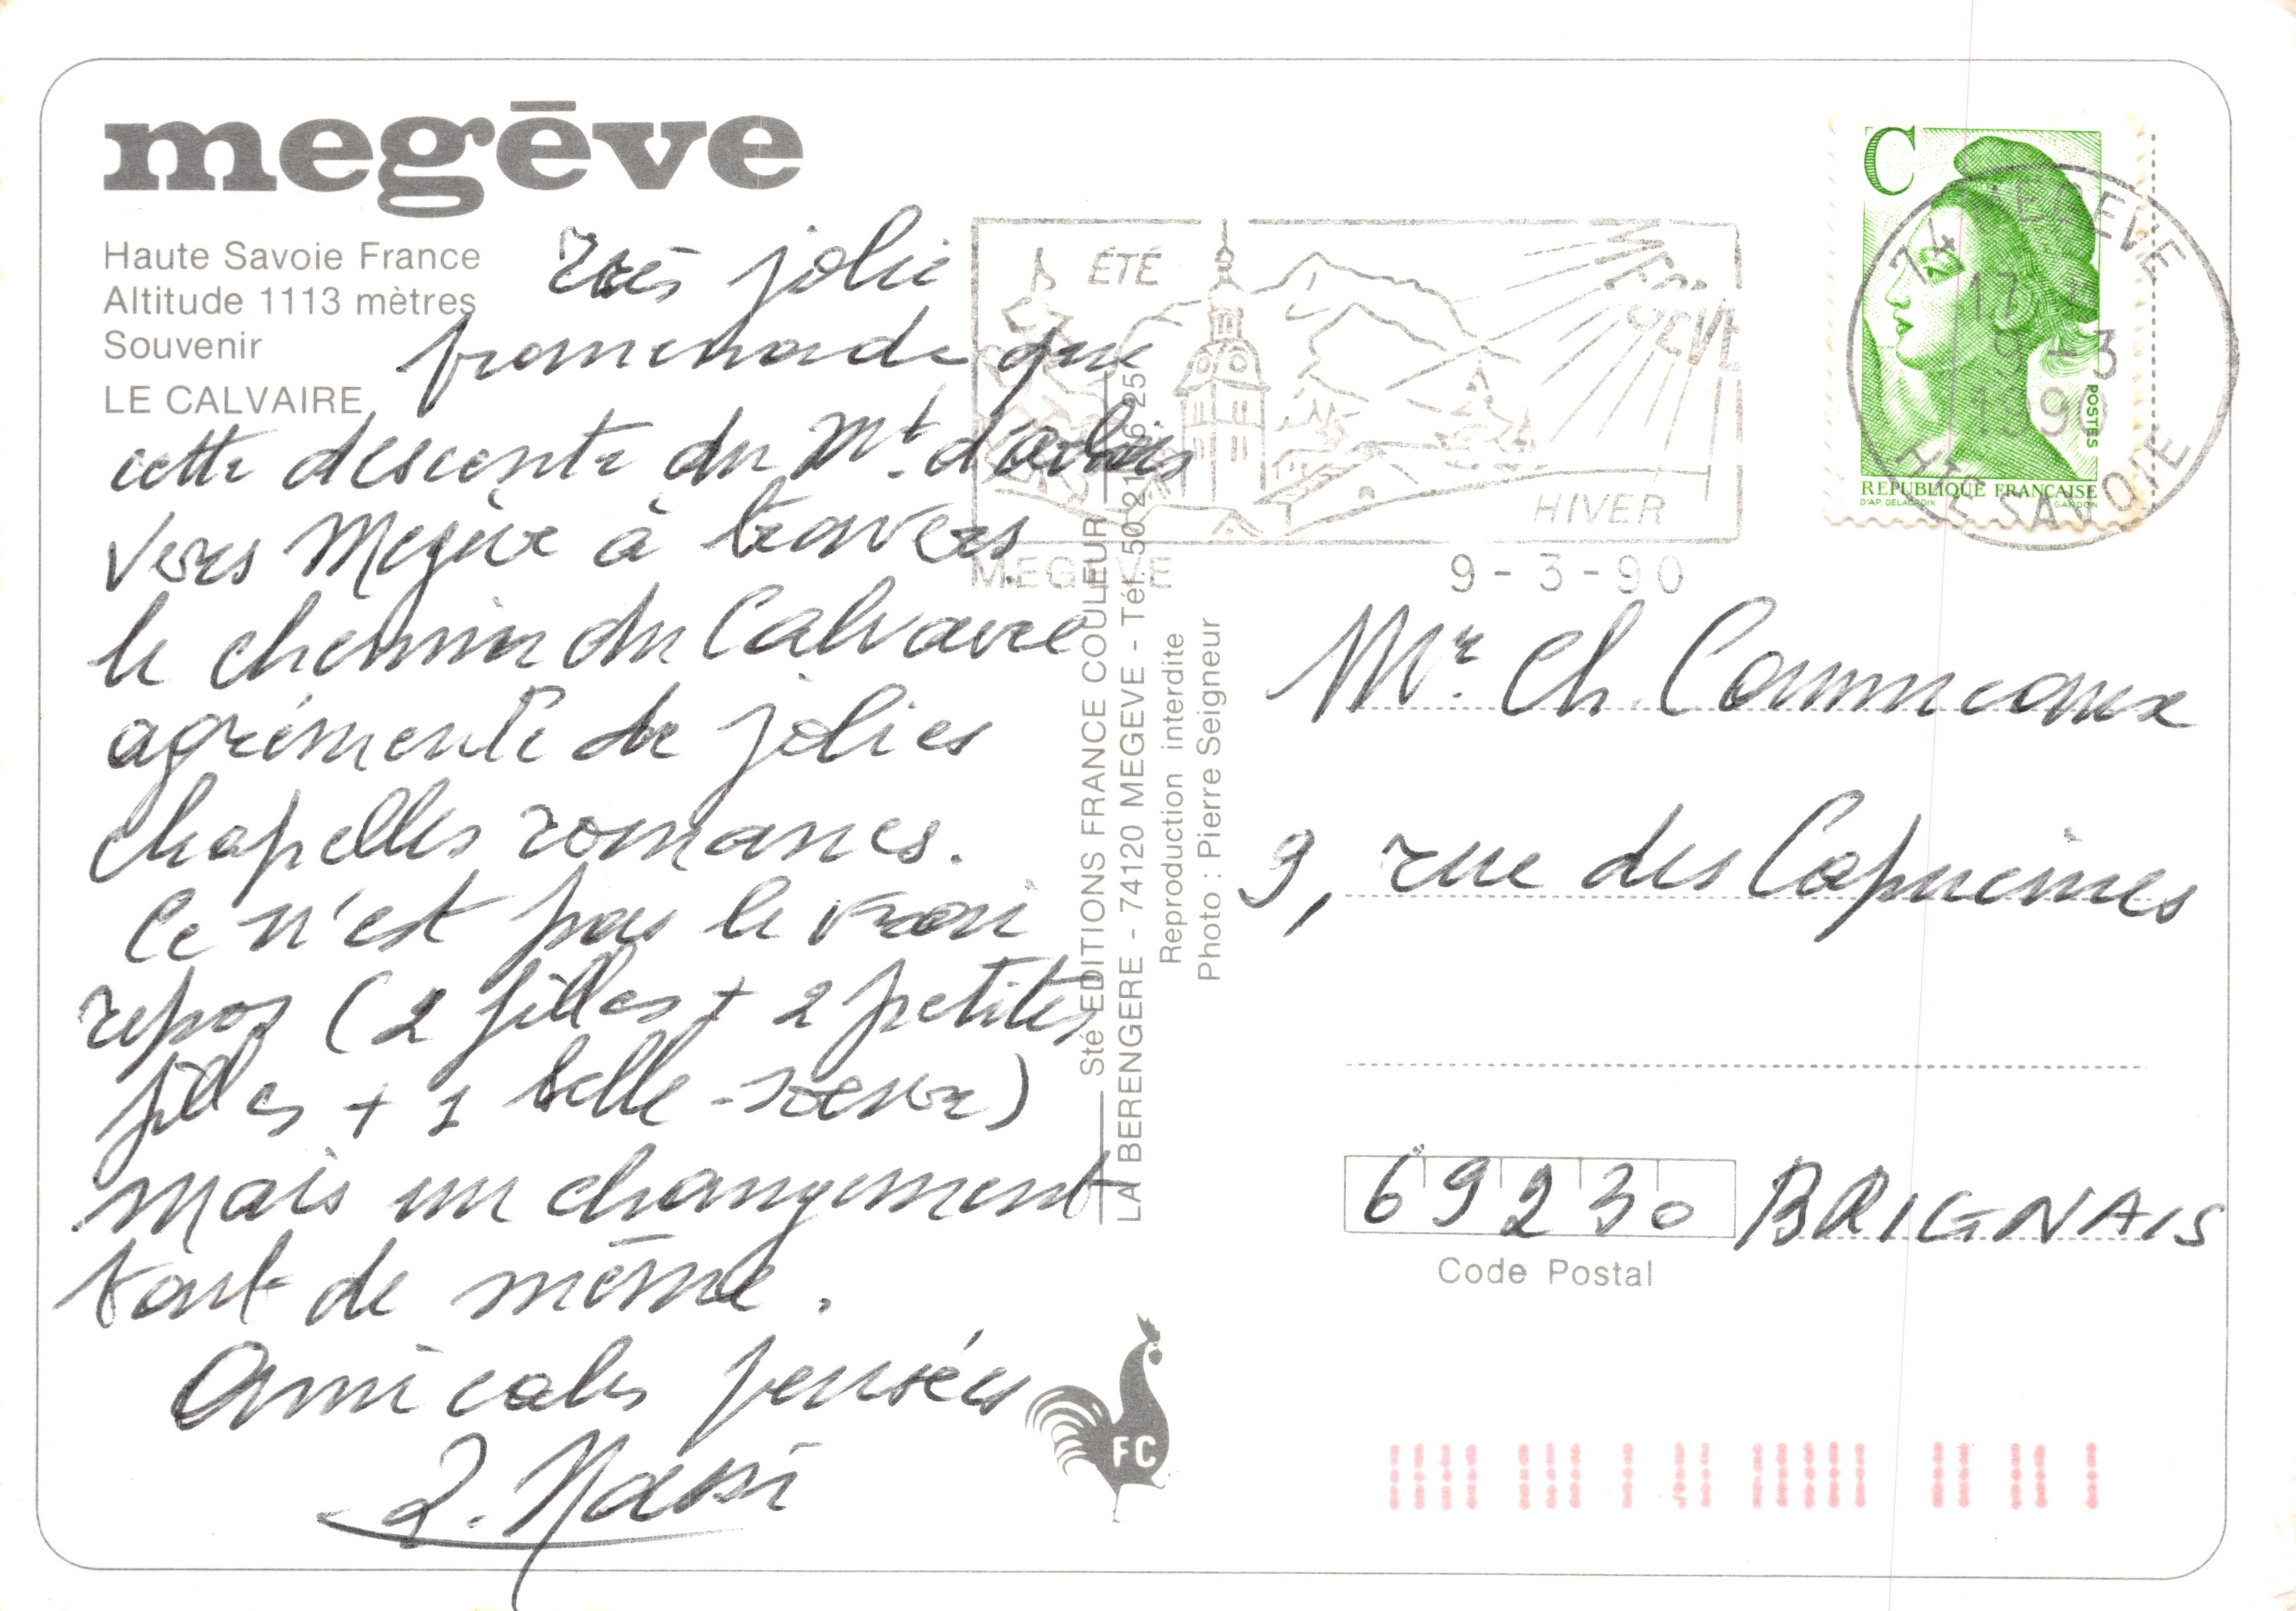 megēve
Haute Savoie France
Altitude 1113 mètres
Souvenir
LE CALVAIRE
Très jolie
promenade que
cette descente du Mt. d'arbois
vers Megève à travers
le chemin du Calvaire
agrémenté de jolies
chapelles romanes.
Ce n'est pas le vrai
repos (2 filles + 2 petites
filles + 1 belle-soeur)
mais un changement
tout de même.
Amicales pensées
Sté EDITIONS FRANCE COULEUR
LA BERENGERE - 74120 MEGEVE - Tél. 50 21 26 25
Reproduction interdite
Photo : Pierre Seigneur
FC
ÉTÉ
HIVER
MEGEVE
9-3-90
C
POSTES
REPUBLIQUE FRANÇAISE
D'AP. DELACROIX GANDON
74 MEGEVE
17
9-3
1990
HTE SAVOIE
Mr. Ch. Commeaux
9, rue des Capucines
69230 BRIGNAIS
Code Postal